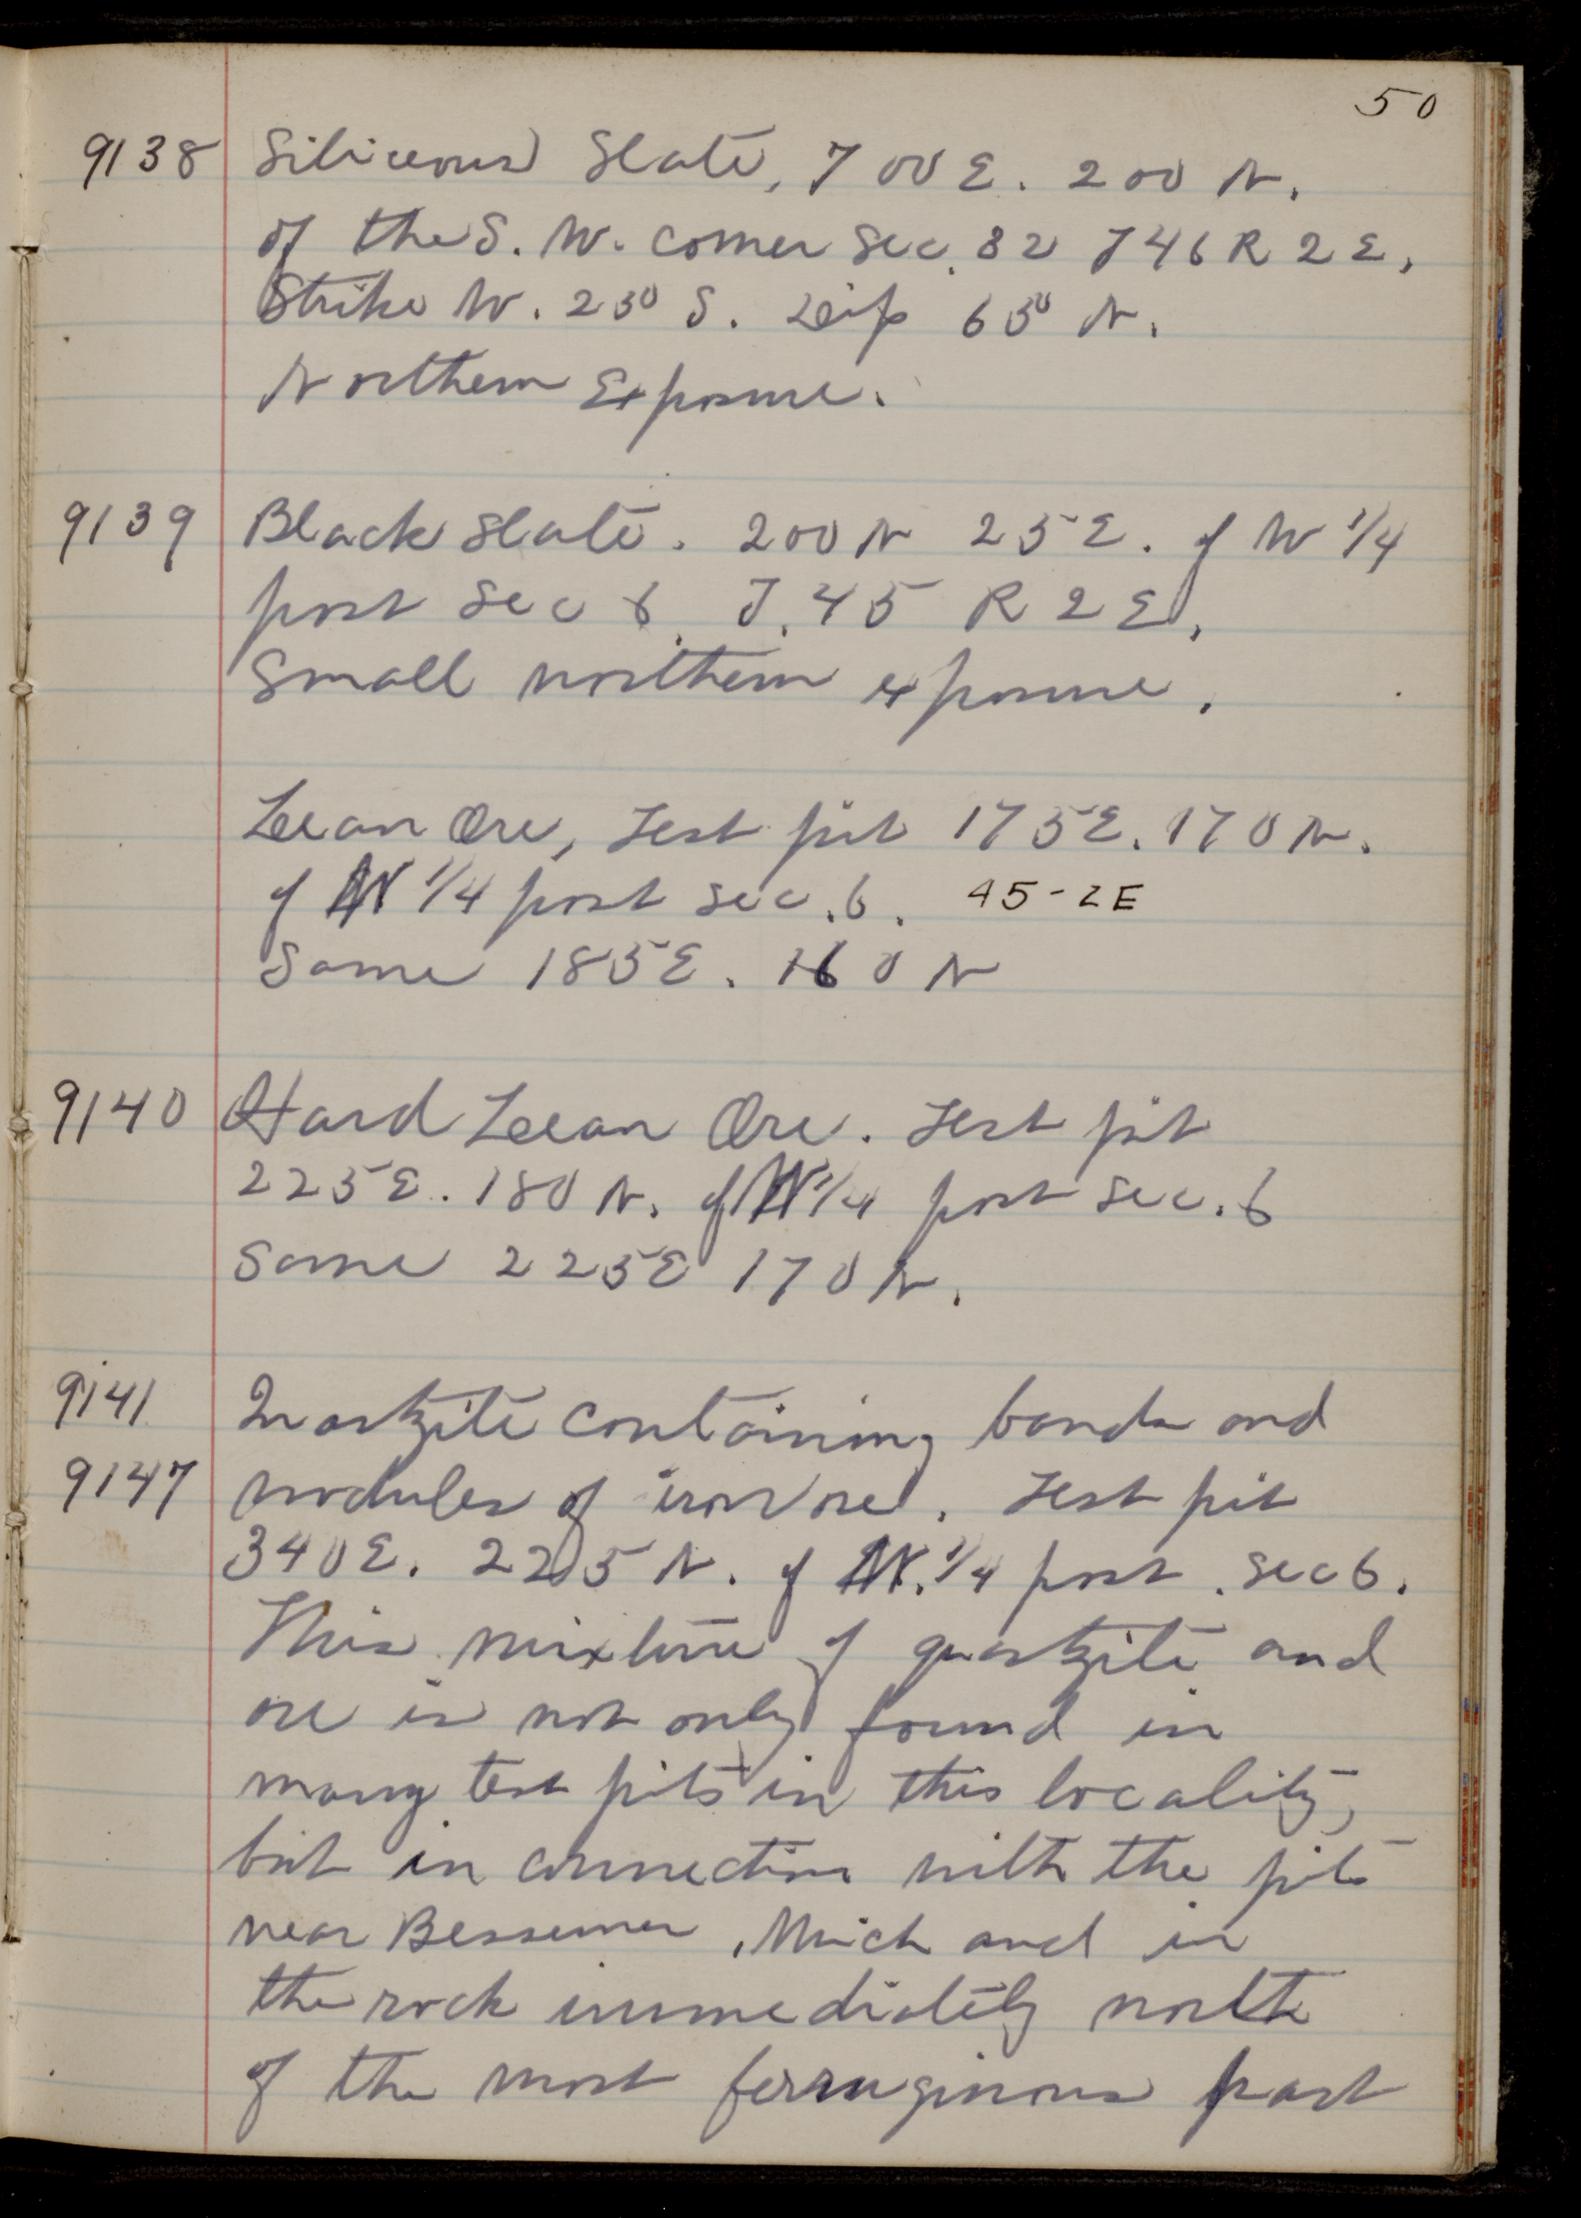 50
9138 Siliceous Slate, 700 E. 200 N.
of the S. W. corner Sec. 32 T 46 R 2 E,
Strike W. 23° S. Dip 63° N.
Northern Exposure.
9139 Black Slate. 200 N 25 E. of W 1/4
post Sec 6. T. 45 R 2 E,
Small northern exposure.
Lean Ore, Test pit 175 E. 170 N.
of W 1/4 post Sec. 6. 45-2E
Same 185 E. 160 N
9140 Hard Lean Ore. Test pit
225 E. 180 N. of W 1/4 post Sec. 6
Same 225 E 170 N.
9141 Quartzite containing bands and
9147 nodules of iron ore. Test pit
340 E. 225 N. of W. 1/4 post. Sec 6.
This mixture of quartzite and
ore is not only found in
many test pits in this locality,
but in connection with the pits
near Bessemer, Mich and in
the rock immediately north
of the most ferruginous part